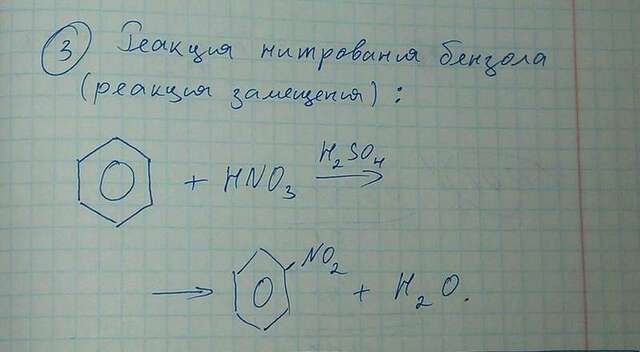 3 Реакция нитрования бензола
(реакция замещения):
+ HNO₃ H₂SO₄ →
→ NO₂ + H₂O.